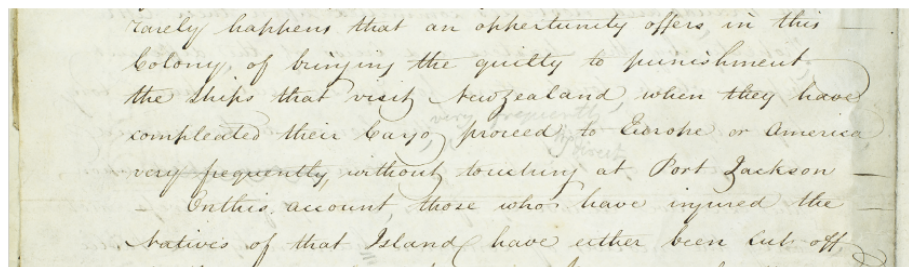 rarely happens that an opportunity offers in this
Colony, of bringing the guilty to punishment
the Ships that visit Newzealand, when they have
very frequently
compleated their Cargo, proceed to Europe or America
direct
very frequently, without touching at Port Jackson
On this account, those who have injured the
Natives of that Island, have either been cut off,